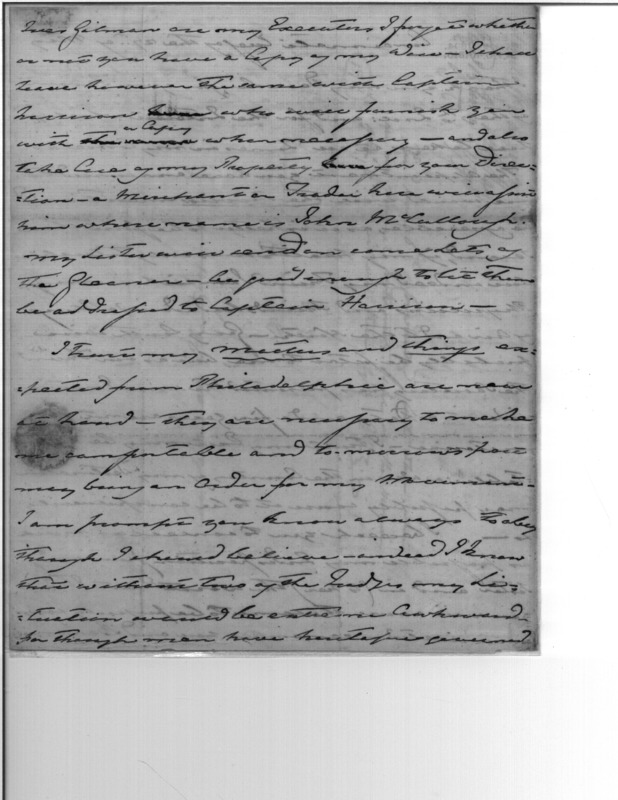 Ives Gilman are my Executors I forget whether
or not you have a Copy of my Will – I shall
leave however the same with Captain
Harrison who will furnish you
a Copy
with when necessary – and also
take Care of my Property for your Direc=
=tion – a Merchant or Trader here will assist
him whose name is John McCullough.
my Sister will send on some Letters of
the Gleaner – be good enough to let them
be addressed to Captain Harrison –
I trust my matters and things ex=
=pected from Philadelphia are near
at hand – they are necessary to make
me comfortable and to-morrows post
may bring an Order for my Movement –
I am prompt you know always to obey
though I should believe – indeed I know
that without two of the Judges my Si=
=tuation would be extreme Awkward –
for though men have heretofore governed